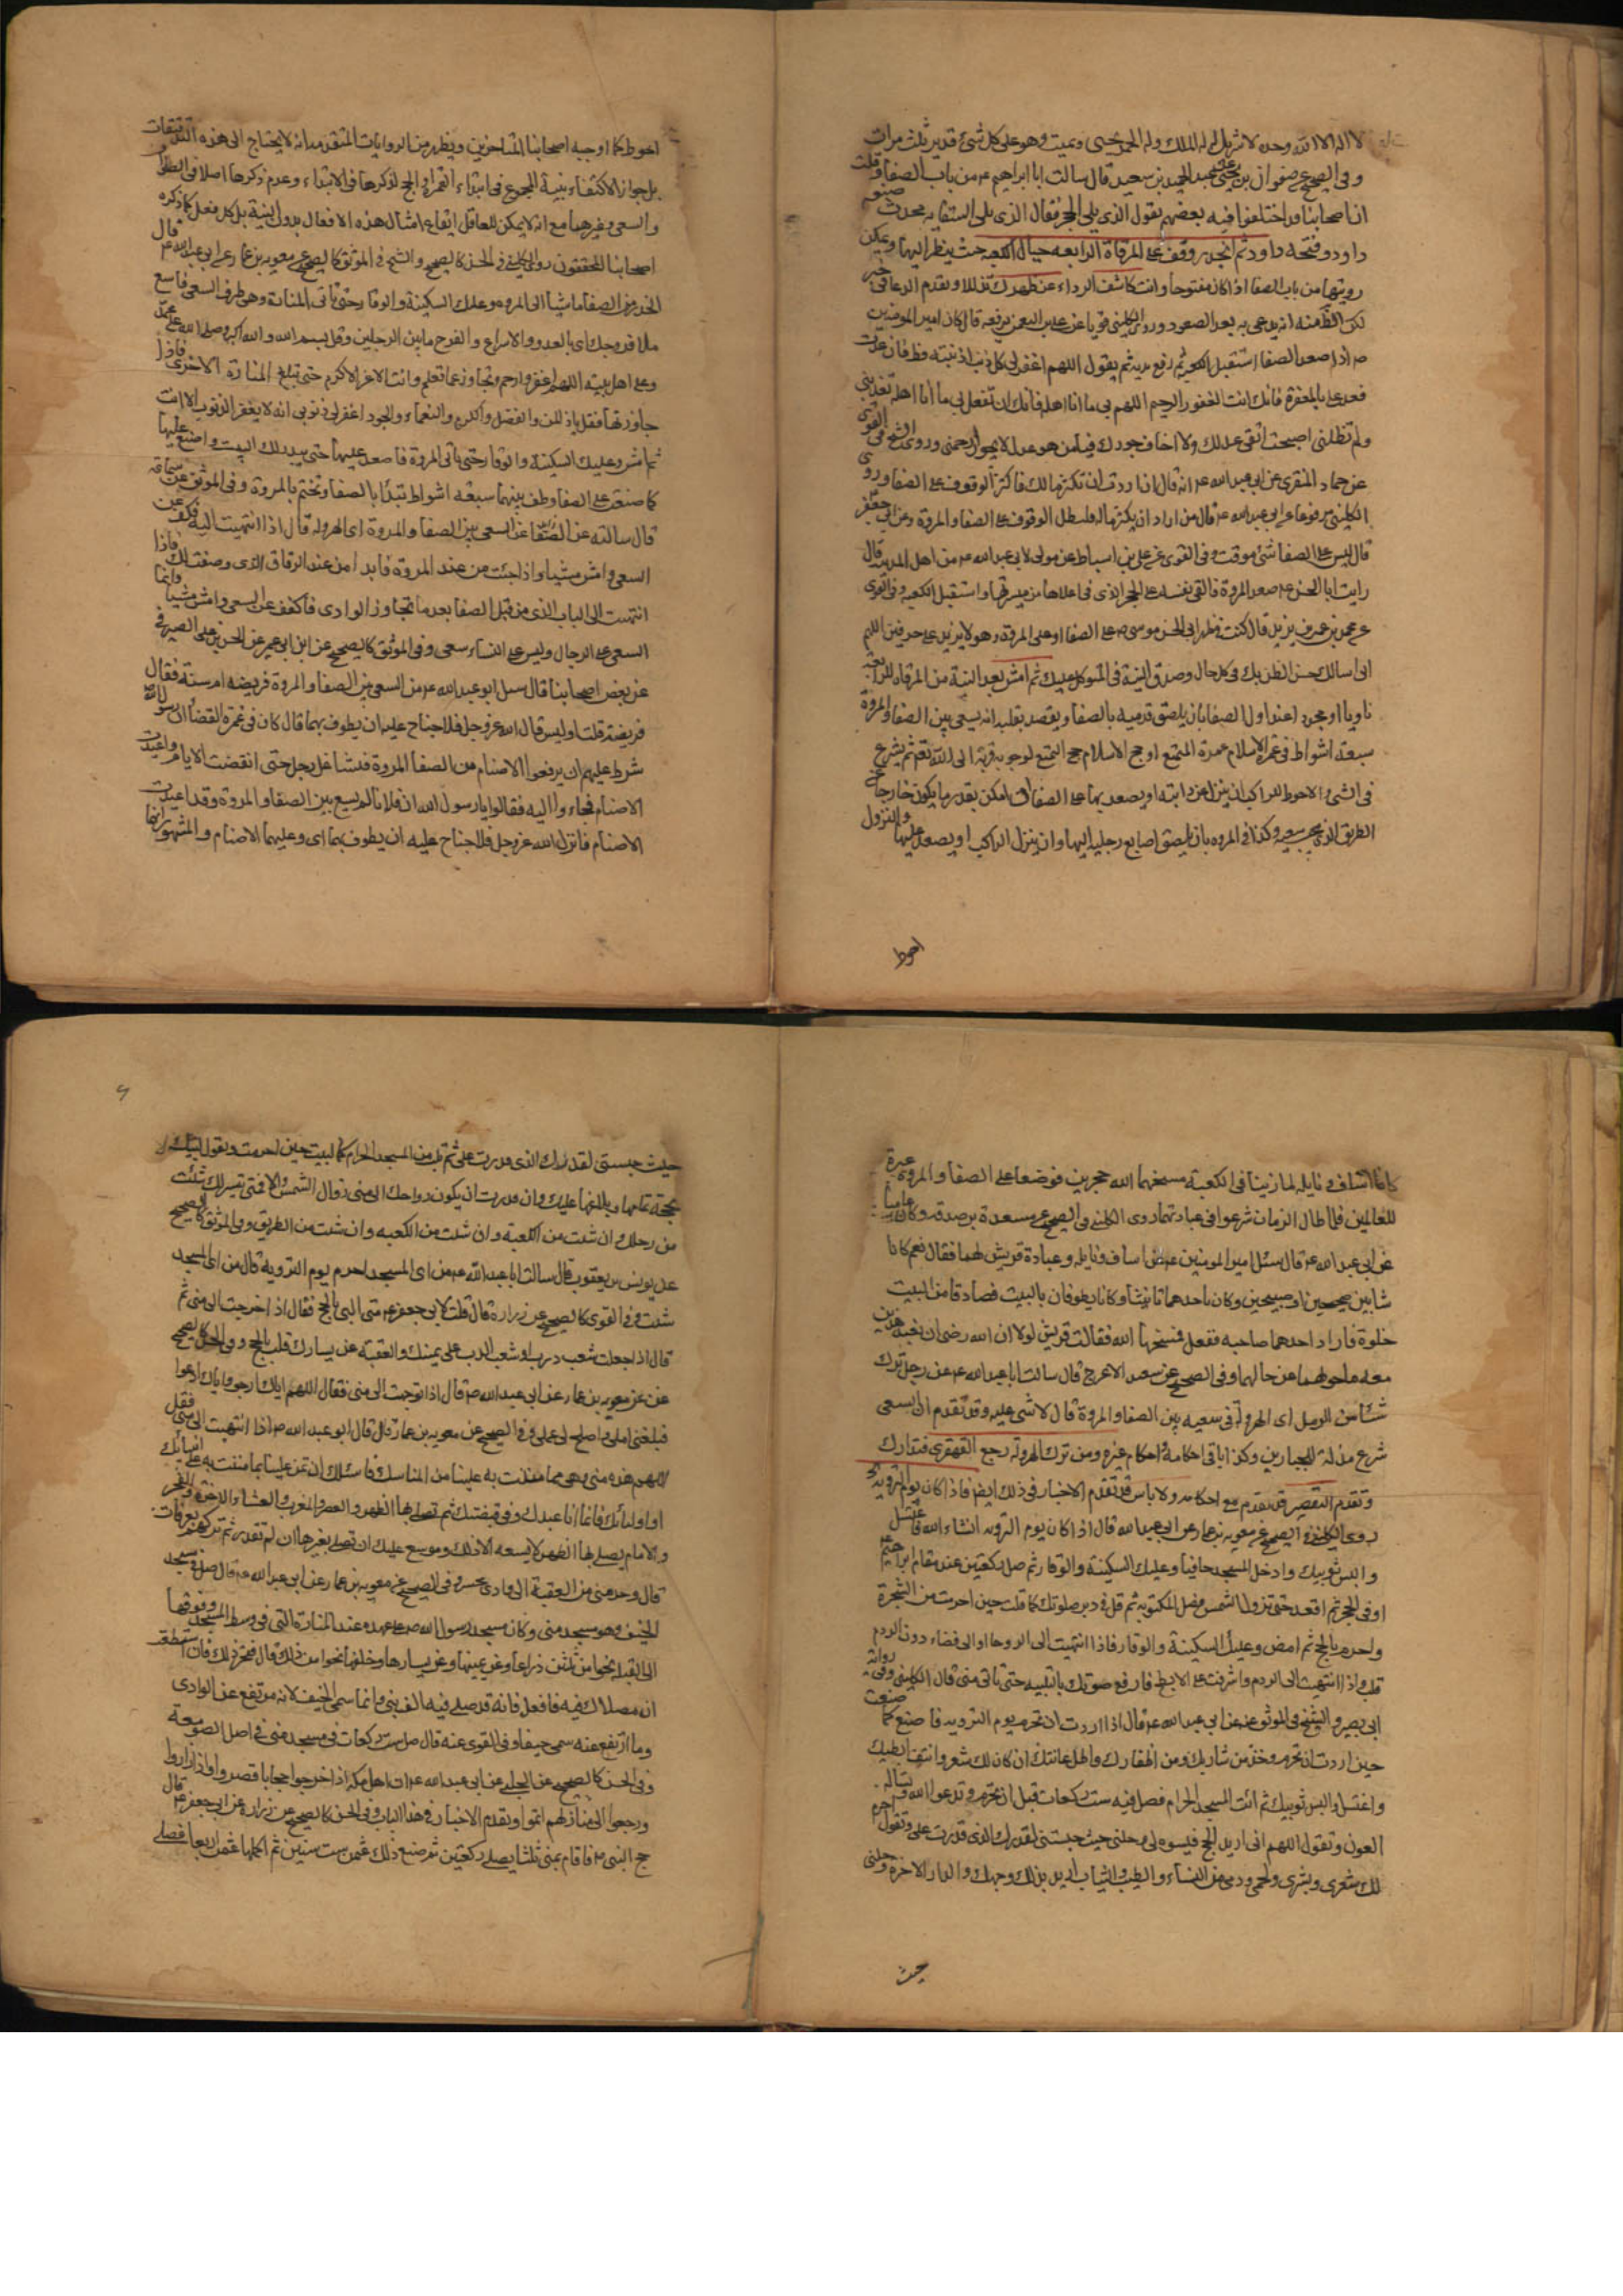 لا اله الا الله وحده لا شريك له له الملك وله الحمد يحيى ويميت وهو على كل شئ قدير ثلث مرات
وفى الصحيح عن صفوان بن يحيى عن عبد الحميد بن سعيد قال سالت ابا ابراهيم ع من باب الصفا قلت
ان اصحابنا قد اختلفوا فيه بعضهم يقول الذى يلى الحجر فقال الذى يلى السقاية محدث صنعه
داود وفتحه داود ثم انحدر وقف على المرقاة الرابعة حيال الكعبة حيث ينظر اليها ويمكن
رويتها من باب الصفا اذا كان مفتوحا وانت كاشف الرداء عن ظهرك تذللا وتقدم الدعا فى خبر
لكن الظ منه انه يدعى به بعد الصعود وروى الكلينى قويا عن على بن النعمن يرفعه قال كان امير المومنين
ص اذا صعد الصفا استقبل الكعبة ثم رفع يديه ثم يقول اللهم اغفر لى كل ذنب اذنبته قط فان عدت
فعد على بالمغفرة فانك انت الغفور الرحيم اللهم افعل بى ما انت اهله فانك ان تفعل بى ما انا اهله تعذبنى
ولم تظلمنى اصبحت اتقى عدلك ولا اخاف جورك فيا من هو عدل لا يجور ارحمنى وروى الشيخ فى القوى
عن حماد المنقرى عن ابى عبد الله ع انه قال ان اردت ان تكثر مالك فاكثر الوقوف على الصفا وروى
الكلينى مرفوعا عن ابى عبد الله ع قال من اراد ان يكثر ماله فليطل الوقوف على الصفا والمروة وعن ابى جعفر
قال ليس على الصفا شئ موقت وفى القوى عن على بن اسباط عن مولى لابى عبد الله ع من اهل المدينة قال
رايت ابا الحسن ع صعد المروة فالقى نفسه على الحجر الذى فى اعلاها من ميسرتها واستقبل الكعبة وفى القوى
عن محمد بن عمر بن يزيد قال كنت فى ظهر ابى الحسن موسى ص على الصفا او على المروة وهو لا يزيد على حرفين اللهم
انى اسالك حسن الظن بك فى كل حال وصدق النية فى التوكل عليك ثم امش بعد النية من المرقاة الرابعة
ناويا او مجددا عند اول الصفا بان يلصق قدميه بالصفا ويقصد بقلبه انه يسعى بين الصفا والمروة
سبعة اشواط فى عمرة الاسلام عمرة التمتع او حج الاسلام حج التمتع لوجوبه قربة الى الله تعم ثم يشرع
فى المشى والاحوط للراكب ان ينزل عن دابته او يصعد بها على الصفا ان امكن بقدر ما يكون خارجا عن
الطريق الذى يجب سعيه وكذا فى المروة بان يلصق اصابع رجليه اليها وان ينزل الراكب او يصعد عليها والنزول
احوط
احوط كما اوجبه اصحابنا المتاخرين ويظهر من الروايات المتقدمة انه لا يحتاج الى هذه التدقيقات
بل جواز الاكتفاء بنية المجموع فى ابتداء العمرة او الحج لذكرها فى الابتداء وعدم ذكرها اصلا فى الطواف
والسعى وغيرهما مع انه لا يمكن للعاقل ايقاع امثال هذه الافعال بدون النية بل كل فعل كما ذكره
اصحابنا المحققون روى الكلينى فى الحسن كالصحيح والشيخ فى الموثق كالصحيح عن معوية بن عمار عن ابى عبد الله ع قال
انحدر من الصفا ماشيا الى المروة وعليك السكينة والوقار حتى تاتى المنارة وهى طرف السعى فاسع
ملا فروجك اى بالعدو والاسراع والفرج ما بين الرجلين وقل بسم الله والله اكبر وصلى الله على محمد
وعلى اهل بيته اللهم اغفر وارحم وتجاوز عما تعلم وانت الاعز الاكرم حتى تبلغ المنارة الاخرى فاذا
جاوزتها فقل يا ذا المن والفضل والكرم والنعماء والجود اغفر لى ذنوبى انه لا يغفر الذنوب الا انت
ثم امش وعليك السكينة والوقار حتى تاتى المروة فاصعد عليها حتى يبدو لك البيت واصنع عليها
كما صنعت على الصفا وطف بينهما سبعة اشواط تبدأ بالصفا وتختم بالمروة وفى الموثق عن سماعة
قال سالته عن السعى بين الصفا والمروة اى الهرولة قال اذا انتهيت اليه فكف عن
السعى وامش مشيا واذا جئت من عند المروة فابدا من عند الزقاق الذى وصفت لك فاذا
انتهيت الى الباب الذى من قبل الصفا بعد ما تجاوز الوادى فاكفف عن السعى وامش مشيا وانما
السعى على الرجال وليس على النساء سعى وفى الموثق كالصحيح عن ابن ابى عمير عن الحسن بن على الصيرفى
عن بعض اصحابنا قال سئل ابو عبد الله ع عن السعى بين الصفا والمروة فريضة ام سنة فقال
فريضة قلت او ليس قال الله عز وجل فلا جناح عليه ان يطوف بهما قال كان فى عمرة القضا ان رسول الله
شرط عليهم ان يرفعوا الاصنام من الصفا المروة فتشاغل رجل حتى انقضت الايام واعيدت
الاصنام فجاءوا اليه فقالوا يا رسول الله ان فلانا لم يسع بين الصفا والمروة وقد اعيدت
الاصنام فانزل الله عز وجل فلا جناح عليه ان يطوف بهما اى وعليهما الاصنام والمشهور انهما
كانا اساف ونايلة لما زنيا فى الكعبة مسخهما الله حجرين فوضعا على الصفا والمروة عبرة
للعالمين فلما طال الزمان شرعوا فى عبادتهما روى الكلينى فى الصحيح عن مسعدة بن صدقة وكان عاميا
عن ابى عبد الله ع قال سئل امير المومنين ع عن اساف ونايلة وعبادة قريش لهما فقال نعم كانا
شابين صبيحين وكان باحدهما تانيث وكانا يطوفان بالبيت فصادفا من البيت
خلوة فاراد احدهما صاحبه ففعل فمسخهما الله فقالت قريش لولا ان الله رضى ان يعبد هذين
معه ما حولهما عن حالهما وفى الصحيح عن سعيد الاعرج قال سالت ابا عبد الله ع عن رجل ترك
شئا من الرمل اى الهرولة فى سعيه بين الصفا والمروة قال لا شئ عليه وقد تقدم ان السعى
شرع مذلة للجبارين وكذا باقى احكامه احكام غيره ومن ترك الهرولة رجع القهقرى فتدارك
وتقدم التقصير قد تقدم مع احكامه ولا باس قد تقدم الاخبار فى ذلك ايضا فاذا كان يوم التروية
روى الكلينى فى الصحيح عن معوية بن عمار عن ابى عبد الله قال اذا كان يوم التروية انشاء الله فاغتسل
والبس ثوبيك وادخل المسجد حافيا وعليك السكينة والوقار ثم صل ركعتين عند مقام ابراهيم
او فى الحجر ثم اقعد حتى تزول الشمس فصل المكتوبة ثم قل فى دبر صلوتك كما قلت حين احرمت من الشجرة
واحرم بالحج ثم امض وعليك السكينة والوقار فاذا انتهيت الى الروحا والى فضاء دون الردم
قلب واذا انتهيت الى الردم واشرفت على الابطح فارفع صوتك بالتلبية حتى تاتى منى قال الكلينى وفى رواية
ابى بصير والشيخ فى الموثق عنه عن ابى عبد الله ع قال اذا اردت ان تحرم يوم التروية فاصنع كما صنعت
حين اردت ان تحرم وخذ من شاربك ومن اظفارك واطل عانتك ان كان لك شعر وانتف ابطيك
واغتسل والبس ثوبيك ثم ائت المسجد الحرام فصل فيه ست ركعات قبل ان تحرم وتدعو الله وتساله
العون وتقول اللهم انى اريد الحج فيسره لى وحلنى حيث حبستنى لقدرك الذى قدرت على وتقول احرم
لك شعرى وبشرى ولحمى ودمى من النساء والطيب والثياب اريد بذلك وجهك والدار الاخرة وحلنى
حيث
حيث حبستنى لقدرك الذى قدرت على ثم تلب من المسجد الحرام كما لبيت حين احرمت وتقول لبيك
بحجة تمامها وبلاغها عليك وان قدرت ان يكون رواحك الى منى زوال الشمس والا فمتى تيسر لك شئت
من رحلك وان شئت من الكعبة وان شئت من الطريق وفى الموثق كالصحيح
عن يونس بن يعقوب قال سالت ابا عبد الله ع من اى المسجد احرم يوم التروية قال من اى المسجد
شئت وفى القوى كالصحيح عن زرارة قال قلت لابى جعفر ع متى البى بالحج فقال اذا خرجت الى منى ثم
قال اذا جعلت شعب درب او شعب الدب على يمينك والعقبة عن يسارك فلب بالحج وفى الحسن كالصحيح
عن معوية بن عمار عن ابى عبد الله ص قال اذا توجهت الى منى فقل اللهم اياك ارجو واياك ادعوا
فبلغنى املى واصلح لى عملى وفى الصحيح عن معوية بن عمار قال قال ابو عبد الله ص اذا انتهيت الى منى فقل
اللهم هذه منى وهى مما مننت به علينا من المناسك فاسئلك ان تمن علينا بما مننت به على انبيائك
واوليائك فانما انا عبدك وفى قبضتك ثم تصلى بها الظهر والعصر والمغرب والعشاء الاخرة والفجر
والامام يصلى بها الظهر لا يسعه الا ذلك وموسع عليك ان تصلى بغيرها ان لم تقدر ثم تدركهم بعرفات
قال وحد منى من العقبة الى وادى محسر وفى الصحيح عن معوية بن عمار عن ابى عبد الله ع قال صل فى مسجد
الخيف وهو مسجد منى وكان مسجد رسول الله ص على عهده عند المنارة التى فى وسط المسجد وفوقها
الى القبلة نحوا من ثلثين ذراعا وعن يمينها وعن يسارها وخلفها نحوا من ذلك قال فتحر ذلك فان استطعت
ان يكون مصلاك فيه فافعل فانه قد صلى فيه الف نبى وانما سمى الخيف لانه مرتفع عن الوادى
وما ارتفع عنه سمى خيفا وفى القوى عنه قال صل ست ركعات فى مسجد منى فى اصل الصومعة
وفى الحسن كالصحيح عن الحلبى عن ابى عبد الله ع ان اهل مكة اذا خرجوا حجاجا قصروا واذا زاروا
ورجعوا الى منازلهم اتموا وتقدم الاخبار فى هذا الباب وفى الحسن كالصحيح عن زرارة عن ابى جعفر ع قال
حج النبى ص فاقام بمنى ثلثا يصلى ركعتين ثم صنع ذلك عثمن ست سنين ثم اكملها عثمن اربعا فصلى